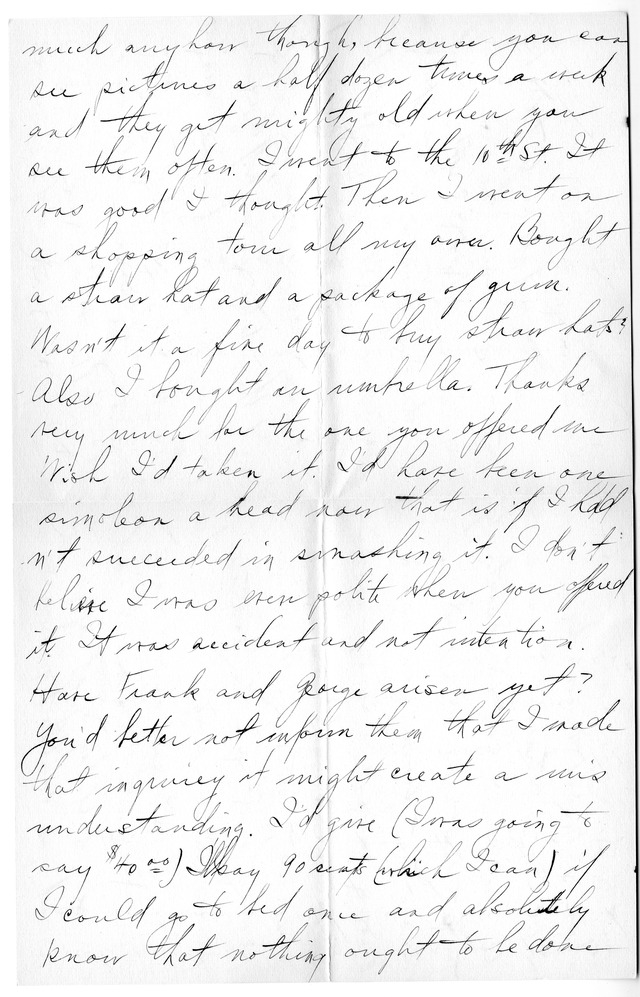 much anyhow though, because you can
see pictures a half dozen times a week
and they get mighty old when you
see them often. I went to the 10th St. It
was good I thought. Then I went on
a shopping tour all my own. Bought
a straw hat and a package of gum.
Wasn't it a fine day to buy straw hats?
Also I bought an umbrella. Thanks
very much for the one you offered me
Wish I'd taken it. I'd have been one
simoleon a head now that is if I had
n't succeeded in smashing it. I don't
believe I was even polite when you offered
it. It was accident and not intention.
Have Frank and George arisen yet?
You'd better not inform them that I made
that inquirey it might create a mis
understanding. I'd give (I was going to
say $40.00) I'll say 90 cents (which I can) if
I could go to bed once and absolutely
know that nothing ought to be done